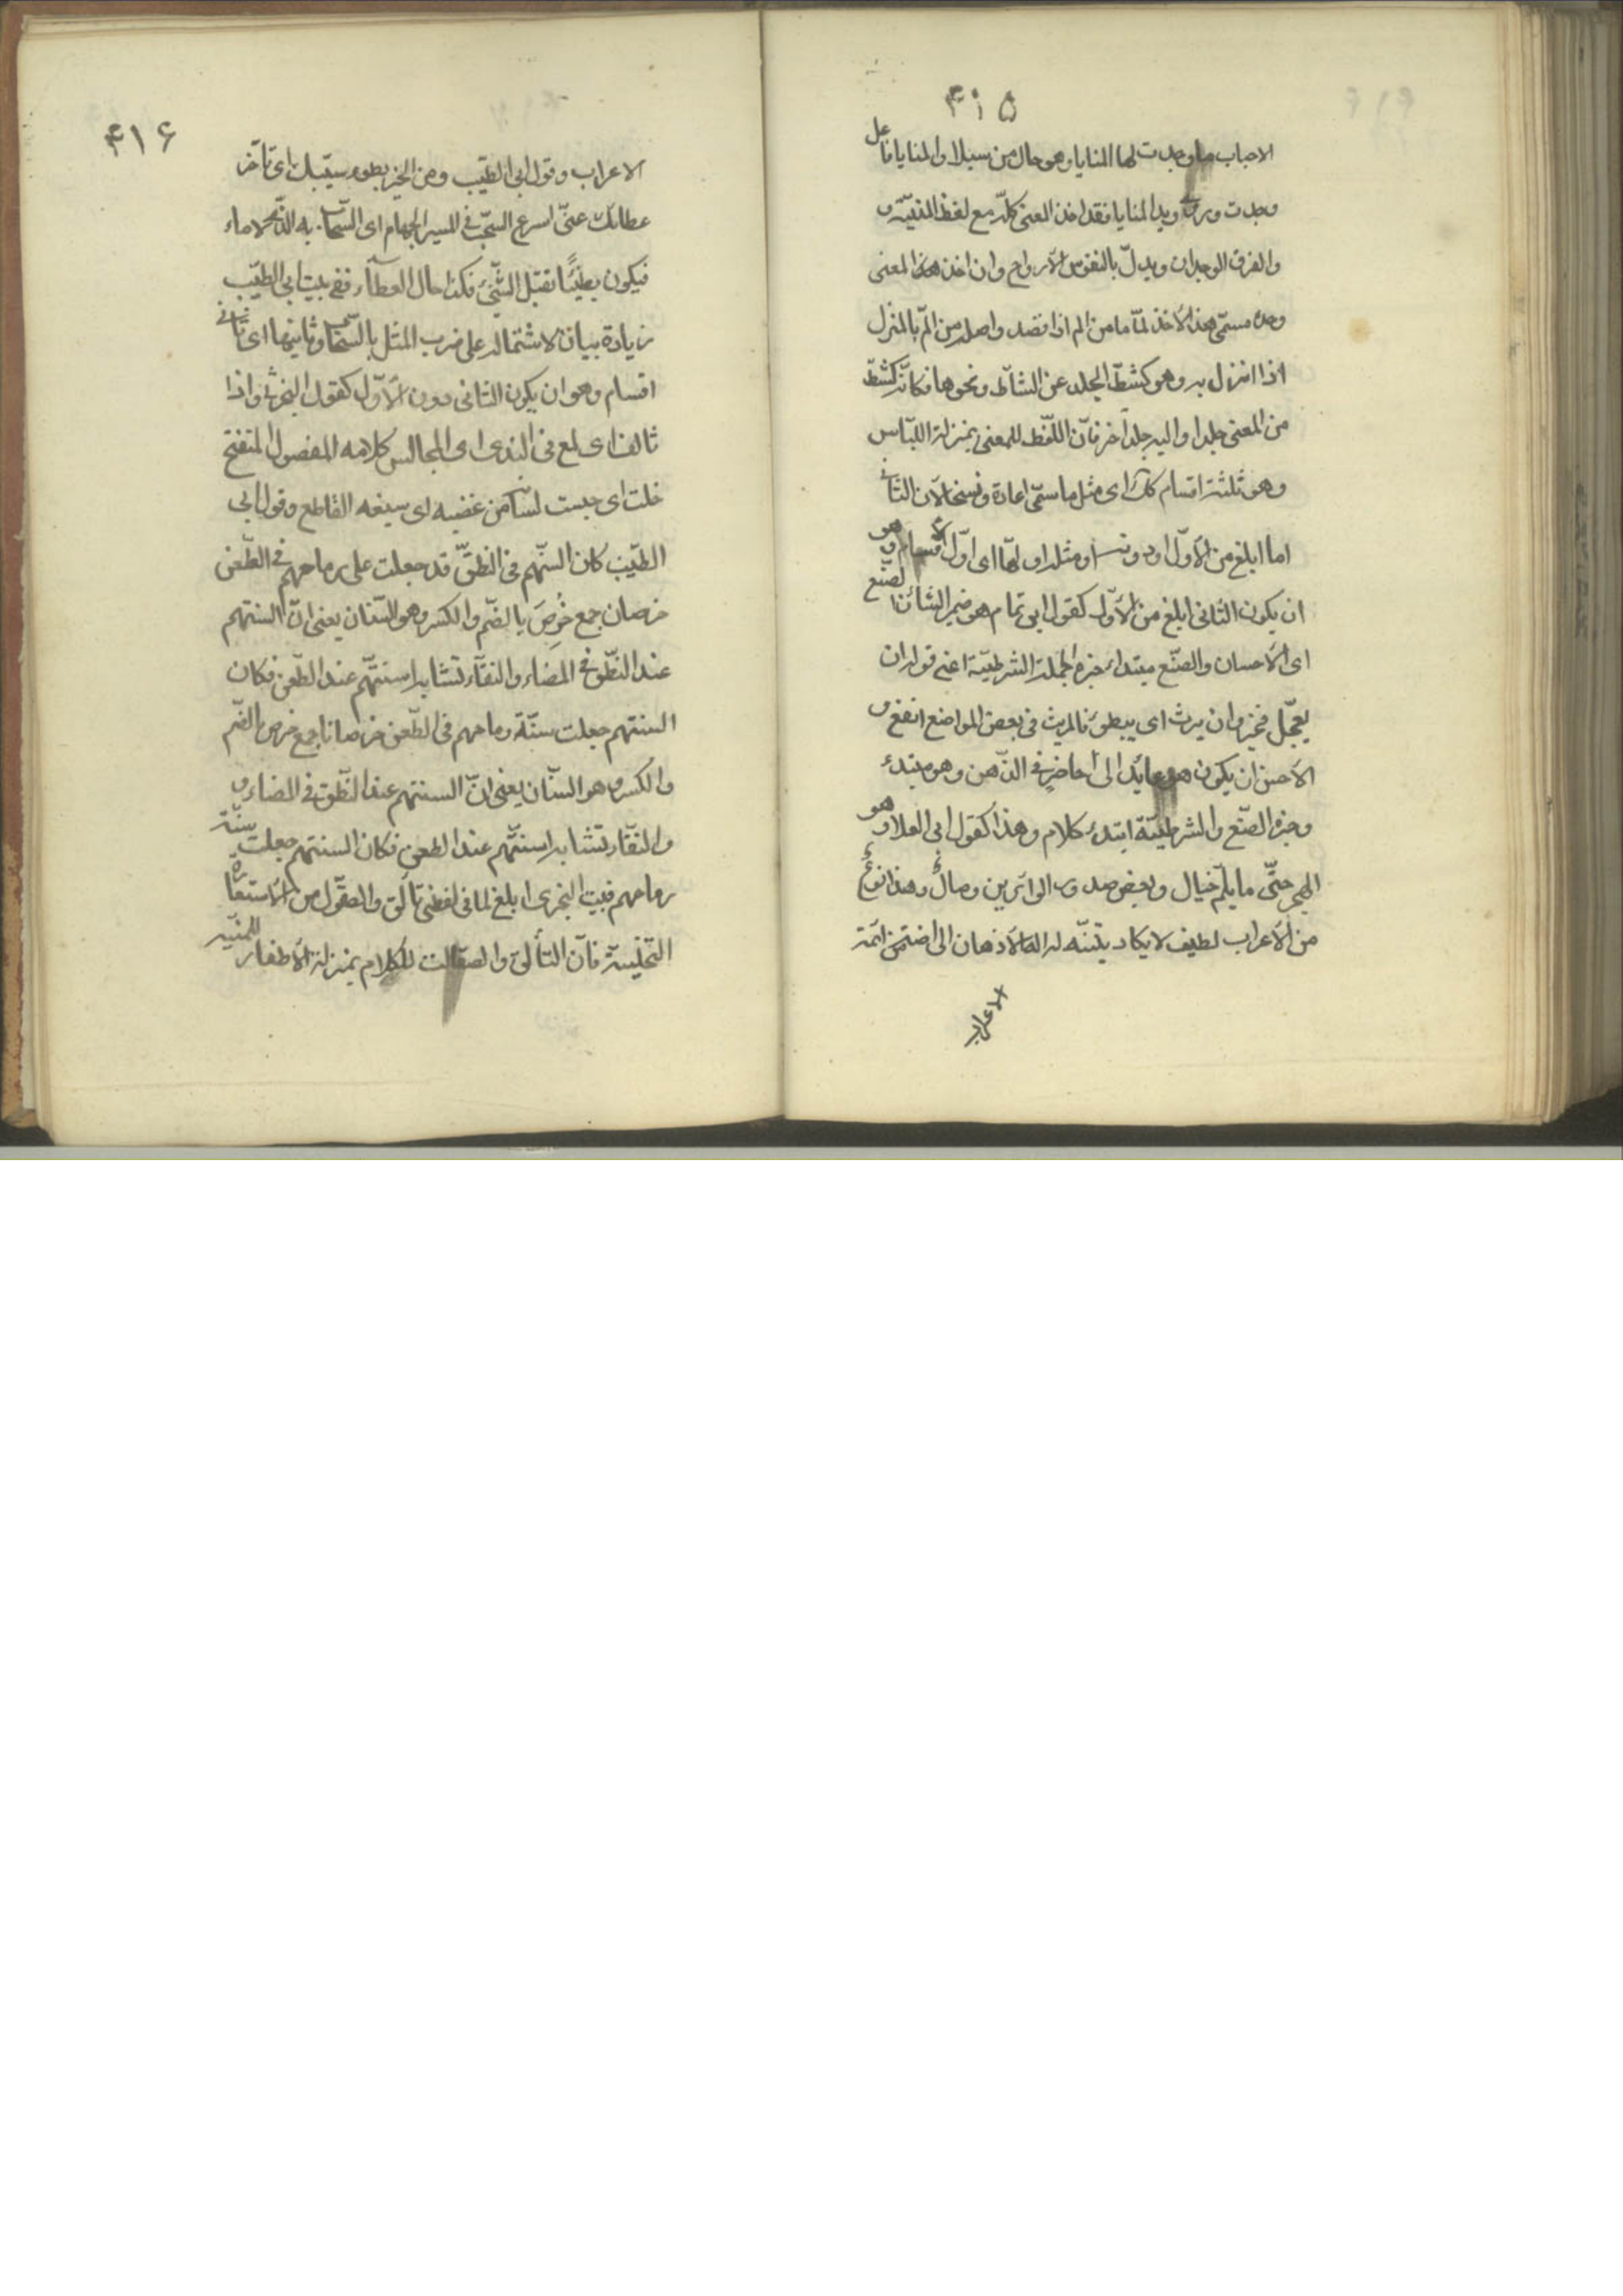 ۴۱۵
الاحباب ما وجدت لها المنايا وهو حال من سبلا والمنايا فاعل
وجدت وروى يد المنايا فقد اخذ المعنى كلّه مع لفظ المنيّة و
والفرق الوجدان وبدل بالنفوس الارواح وان اخذ هكذا المعنى
وحده سمّى هذا الاخذ لمّاما من الم اذا قصد واصله من المّ بالمنزل
اذا انزل به وهو كشطّ الجلد عن الشاة ونحوها فكانّه كشطّ
من المعنى جلدا واليه جلدا اخر فانّ اللّفظ للمعنى بمنزلة اللبّاس
وهو ثلثة اقسام كك اى مثل ما سمّى اعادة ونسخا لانّ الثانى
اما ابلغ من الاوّل او دونه او مثله اوّلها اى اوّل الاقسام وهو
ان يكون الثانى ابلغ من الاوّل كقول ابى تمام هو ضمير الشان الصّنع
اى الاحسان والصنّع مبتداء خبره الجملة الشرطيّة اعنى قوله ان
يعجّل فخير وان يرث اى يبطؤ فالريث فى بعض المواضع انفع و
الاحسن ان يكون هو عايدا الى احاضر فى الذّهن وهو مبتدء
وخبره الصّنع والشرطيّة ابتدء كلام وهذا كقول ابى العلا وهو
الهجر حتّى ما يلمّ خيال وبعض صدود الزائرين وصال وهذا نوع
من الاعراب لطيف لا يكاد يتنبّه له الا الاذهان الراضة من ائمة
الاعراب
۴۱۶
الاعراب وقول ابى الطيّب ومن الخير بطوء سيبك اى تاخر
عطائك عنّى اسرع السّحب فى المسير الجهام اى السّحاب به الّذى لا ماء
فيكون بطيئا ثقيل الشّئ فكذا حال العطآء ففى بيت ابى الطيّب
زيادة بيان لاشتماله على ضرب المثل بالسّحاب وثانيها اى ثانى
اقسام وهو ان يكون الثانى دون الاوّل كقول البحترى واذا
تالف اى لمع فى الندى اى المجالس كلامه المصقول المتفتح
خلت اى حسبت لسانه من عضبه اى سيفه القاطع وقول ابى
الطيّب كان السنهم فى النطق قد جعلت على رماحهم فى الطّعن
خرصان جمع خرص بالضّم والكسر وهو السّنان يعنى انّ السنتهم
عند النّطق فى المضاء والنفآء تشابه اسنتّهم عند الطّعن فكان
السنتهم جعلت سنّة رماحهم فى الطّعن خرصانا جمع خرص بالضّم
والكسر وهو السنّان يعنى انّ السنتهم عند النّطق فى المضاء و
والنفآء تشابه اسنتّهم عند الطعن فكان السنتهم جعلت سنّة
رماحهم فبيت البحترى ابلغ لما فى لفظى تالق والمصقول من الاستعارة
التخيليّة فانّ التألق والصقالة للكلام بمنزلة الاظفار للمنيّة